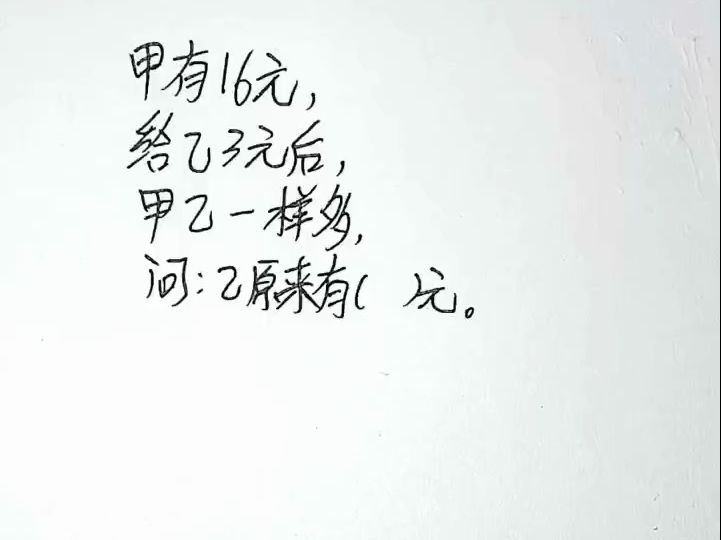 甲有16元,
给乙3元后,
甲乙一样多,
问:乙原来有( )元。